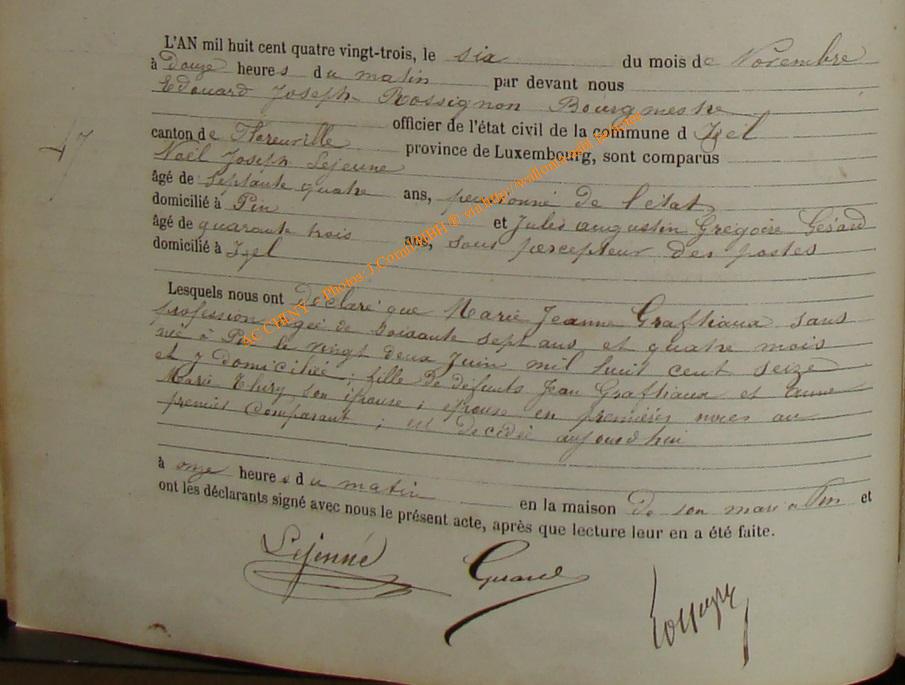 L'AN mil huit cent quatre vingt-trois, le six du mois de Novembre
à Douze heures du matin par devant nous
Edouard Joseph Rossignon Bourgmestre
officier de l'état civil de la commune d Izel
canton de Florenville province de Luxembourg, sont comparus
Noël Joseph Lejeune
âgé de Septante quatre ans, pensionné de l'état
domicilié à Pin et Jules augustin Gregoire Gérard
âgé de quarante trois ans, sous percepteur des postes
domicilié à Izel
47
Lesquels nous ont déclaré que Marie Jeanne Graftiaux sans
profession agée de soixante sept ans et quatre mois
née à Pin le vingt deux Juin mil huit cent seize
et y domiciliée ; fille de défunts Jean Graftiaux et Anne
Marie Thiry son épouse ; épouse en premières noces au
premier Comparant ; est décédée aujourd'hui
à onze heures du matin en la maison de son mari à Pin et
ont les déclarants signé avec nous le présent acte, après que lecture leur en a été faite.
Lejeune Gerard
AC CHINY - Photos J.Comblin BH ® via http/